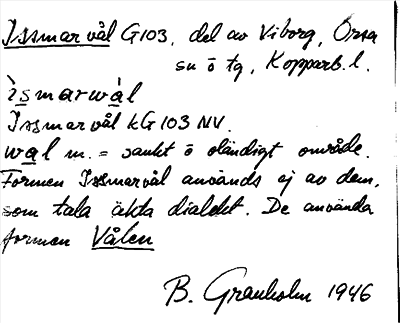 Issmarvål G103, del av Viborg, Orsa
sn o tg, Kopparb. l.
ìsmarwàl
Issmarvål kG103 NV.
wal m. = sankt o oländigt område.
Formen Issmarvål används ej av dem,
som tala äkta dialekt. De använda
formen Vålen
B. Granholm 1946